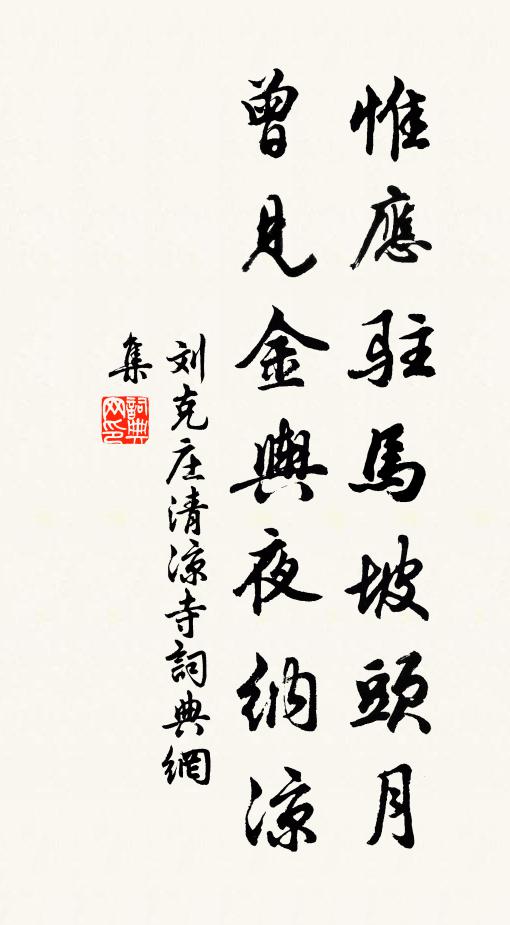 惟應駐馬坡頭月
曾見金輿夜納凉
刘克庄清凉寺詞典網
集
詞典
网印